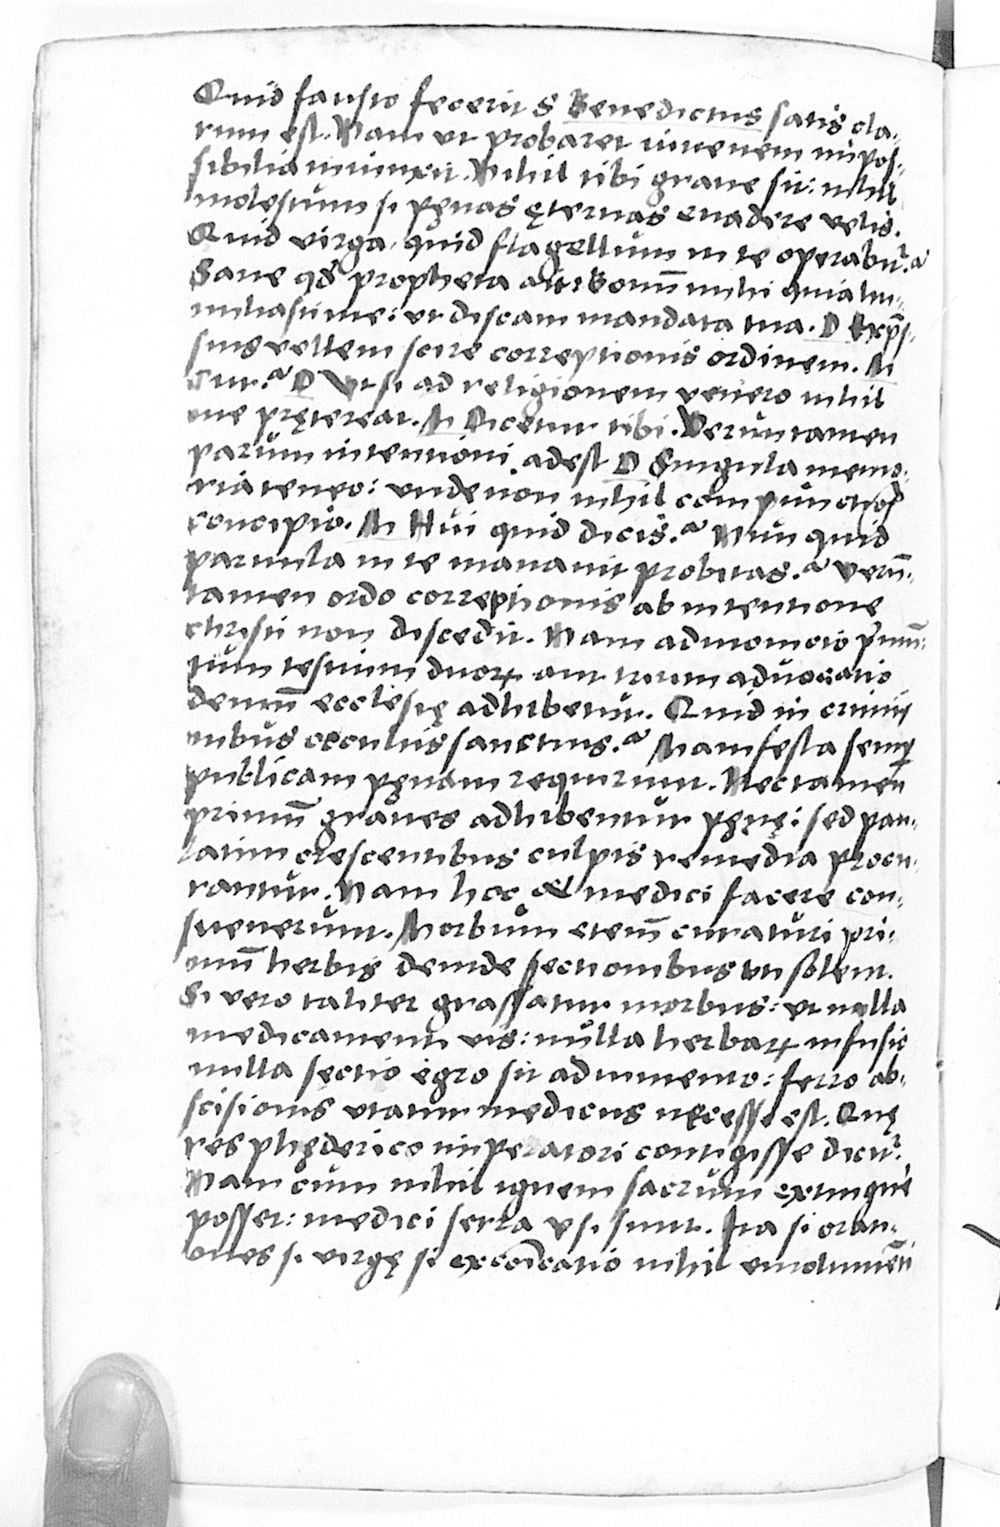 Quid fausto fecerit S Benedictus satis cla-
rum est. Nam ut probaret iuuenem impos-
sibilia iniunxit. Nihil tibi graue sit: nihil
molestum si pęnas ęternas euadere velis.
Quid virga, quid flagellum in te operabit̃?
Sane qđ propheta ait: Bonũ mihi quia hu-
miliasti me: ut discam mandata tua. D Exp̃s-
sius vellem scire correptionis ordinem. M
Cur? D Ut si ad religionem venero nihil
me prętereat. M Dicetur tibi. Veruntamen
parum intentioni adest D Singula memo-
ria teneo: unde non nihil compunctiois
concipio. M Hui quid dicis? Nun quid
paruula in te manauit probitas? Verũ-
tamen ordo correptionis ab intentione
christi non discedit. Nam admonicio p̃mũ:
tum testium duoꝝ aut trium aduocatio
demũ ecclesię adhibetur. Quid in crimi
nibus occultis sanctius? Manifesta semp̱
publicam pęnam requirunt. Nec tamen
primũ graues adhibentur pęnę: sed pau-
latim crescentibus culpis remedia procu-
rantur. Nam hoc & medici facere con-
sueuerunt. Morbum etem̃ curaturi pri-
mũ herbis deinde sectionibus uti solent.
Si vero taliter grassatur morbus: ut nulla
medicamenti vis: nulla herbaꝝ infusio
nulla sectio egro sit adiumento: ferro ab-
scisionis utatur medicus necesse est. Quę
res phęderico imperatori contigisse dicit̃.
Nam cum nihil ignem sacrum extingue
posset: medici serra usi sunt. Ita si orati-
ones si virgę si excõicatio nihil emolumẽti